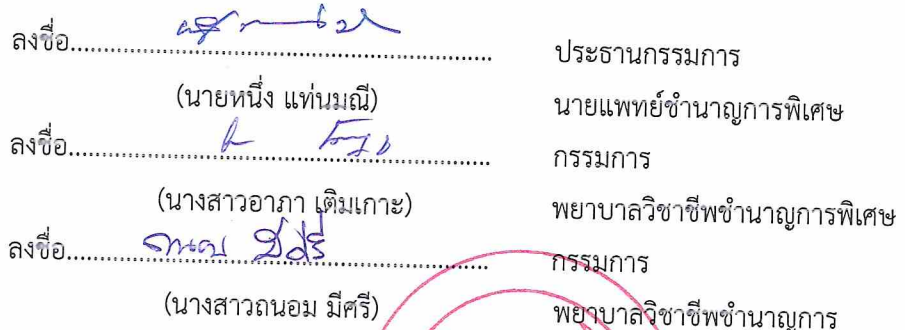 ลงชื่อ............................................................ ประธานกรรมการ
(นายหนึ่ง แท่นมณี) นายแพทย์ชำนาญการพิเศษ
ลงชื่อ............................................................ กรรมการ
(นางสาวอาภา เติมเกาะ) พยาบาลวิชาชีพชำนาญการพิเศษ
ลงชื่อ............................................................ กรรมการ
(นางสาวถนอม มีศรี) พยาบาลวิชาชีพชำนาญการ